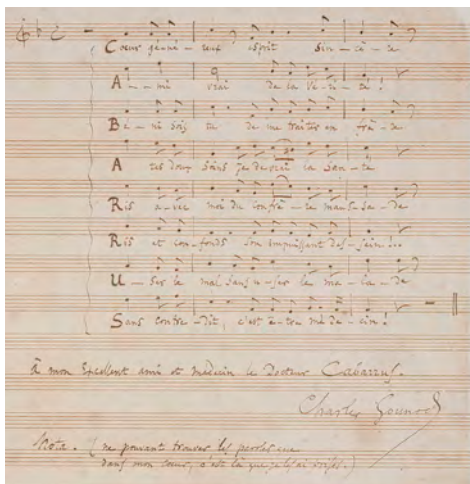 Cœur géné-reux esprit sin-cè-re
A--mi vrai de la Vé-ri-té!
Bé-ni sois tu de me traiter en frè-re
A tes doux soins je devrai la San-té
Ris a-vec moi du confrè-re maussa-de
Ris et con-fonds son impuissant des-sein!..
U--ser le mal sans u-ser le ma-la-de
Sans contre-dit, c'est ê-tre mé-de-cin!
à mon Excellent ami et médecin le Docteur Cabarrus.
Charles Gounod
Nota. (ne pouvant trouver les paroles que
dans mon cœur, c'est là que je les ai prises.)